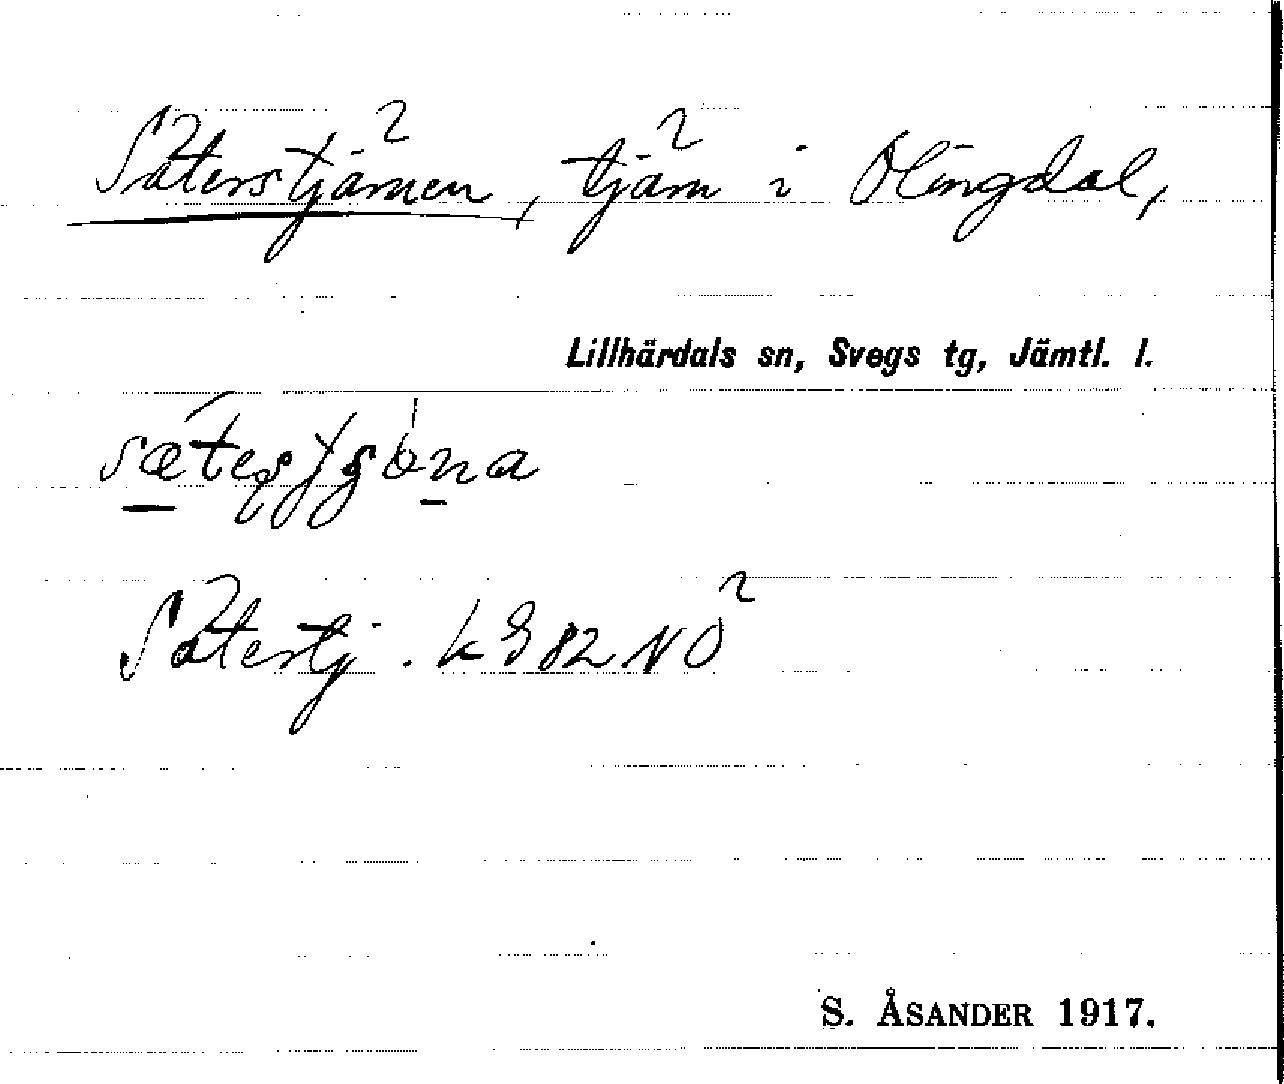 Säterstjärnen, tjärn i Olingdal,
Lillhärdals sn, Svegs tg, Jämtl. l.
Sätertj. k982NO
S. ÅSANDER 1917.